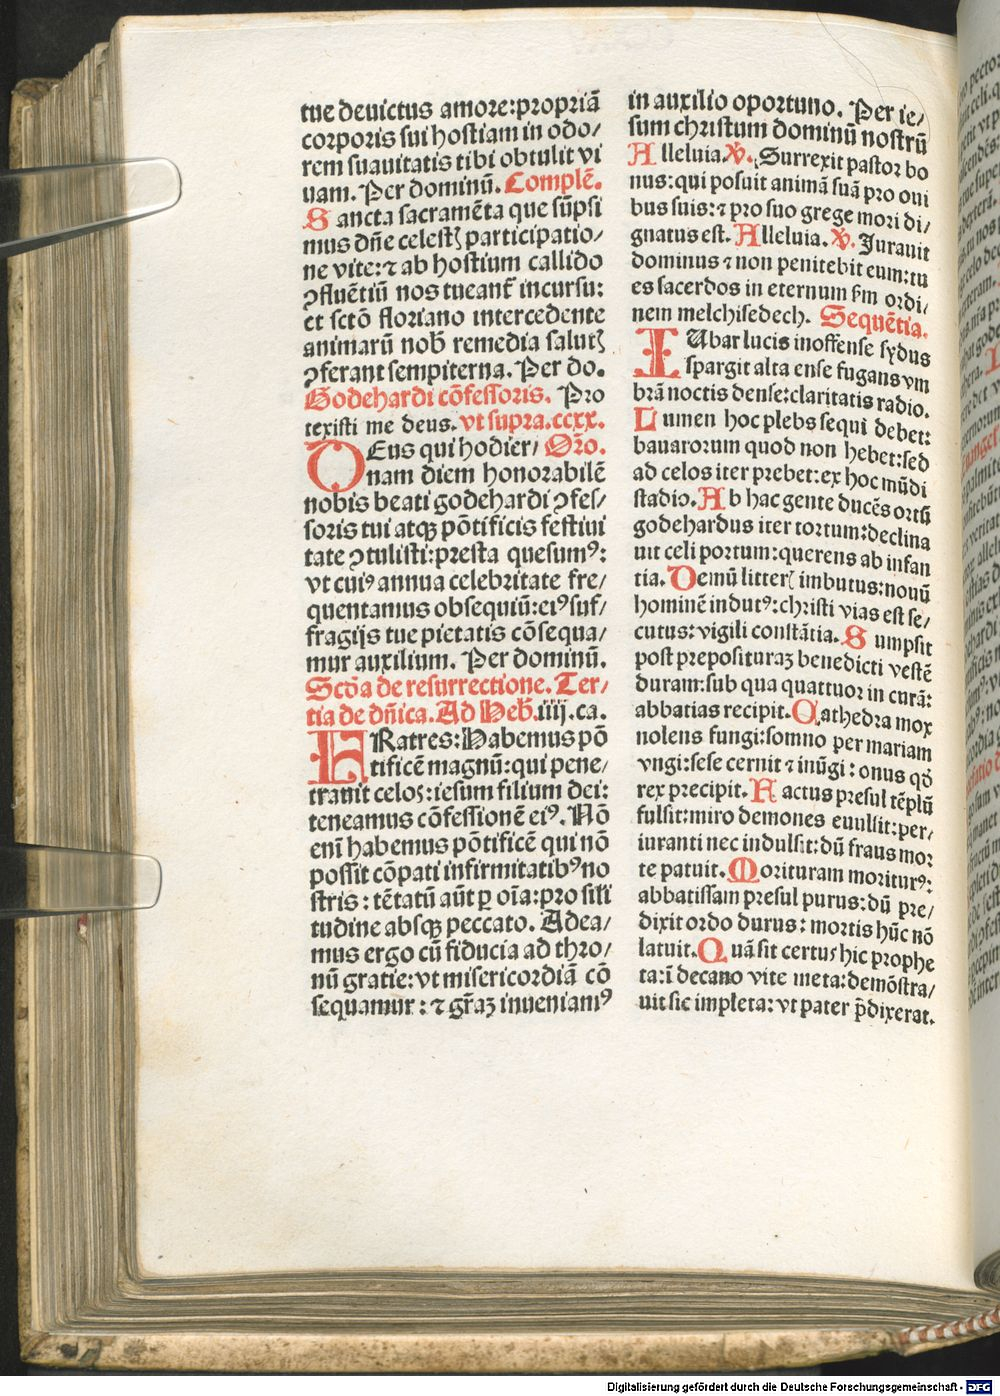 tue deuictus amore:propriã
corporis sui hostiam in odo/
rem suauitatis tibi obtulit vi
uam. Per dominũ. Complẽ.
Sancta sacramẽta que sũpsi
mus dñe celestꝭ participatio/
ne vite:⁊ ab hostium callido
ꝯfluẽtiũ nos tueant᷑ incursu:
et sctõ floriano intercedente
animarũ nob̃ remedia salutꝭ
ꝯferant sempiterna. Per do.
Godehardi cõfessoris. Pro
texisti me deus. vt supra.ccxx.
DEus qui hodier/ Orõ.
nam diem honorabilẽ
nobis beati godehardi ꝯfes/
soris tui atqꝫ põtificis festiui
tate ꝯtulisti:presta quesumꝰ:
vt cuiꝰ annua celebritate fre/
quentamus obsequiũ:eiꝰ suf/
fragijs tue pietatis cõsequa/
mur auxilium. Per dominũ.
Scđa de resurrectione. Ter/
tia de dñica. Ad Heb̃.iiij.ca.
FRatres:Habemus põ
tificẽ magnũ:qui pene/
trauit celos:iesum filium dei:
teneamus cõfessionẽ eiꝰ. Nõ
enĩ habemus põtificẽ qui nõ
possit cõpati infirmitatibꝰ no
stris:tẽtatũ aũt ꝑ oĩa:pro sili
tudine absqꝫ peccato. Adea/
mus ergo cũ fiducia ad thro/
nũ gratie:vt misericordiã cõ
sequamur:⁊ gr̃aꝫ inueniamꝰ
in auxilio oportuno. Per ie/
sum christum dominũ nostrũ
Alleluia.℣. Surrexit pastor bo
nus:qui posuit animã suã pro oui
bus suis:⁊ pro suo grege mori di/
gnatus est. Alleluia. ℣. Jurauit
dominus ⁊ non penitebit eum:tu
es sacerdos in eternum s̃m ordi/
nem melchisedech. Sequẽtia.
IUbar lucis inoffense sydus
spargit alta ense fugans vm
brã noctis dense:claritatis radio.
Lumen hoc plebs sequi debet:
bauarorum quod non hebet:sed
ad celos iter prebet:ex hoc mũdi
stadio. Ab hac gente ducẽs ortũ
godehardus iter tortum:declina
uit celi portum:querens ab infan
tia. Demũ litterꝭ imbutus:nouũ
hominẽ indutꝰ:christi vias est se/
cutus:vigili constãtia. Sumpsit
post preposituraꝫ benedicti vestẽ
duram:sub qua quattuor in curã:
abbatias recipit. Cathedra mox
nolens fungi:somno per mariam
vngi:sese cernit ⁊ inũgi:onus qđ
rex precipit. Factus presul tẽplũ
fulsit:miro demones euulsit:per/
iuranti nec indulsit:dũ fraus mor
te patuit. Morituram moriturꝰ:
abbatissam presul purus:dũ pre/
dixit ordo durus:mortis hũc nõ
latuit. Quã sit certus hic prophe
ta:ĩ decano vite meta:demõstra/
uit sic impleta:vt pater p̃dixerat.
Digitalisierung gefördert durch die Deutsche Forschungsgemeinschaft - DFG